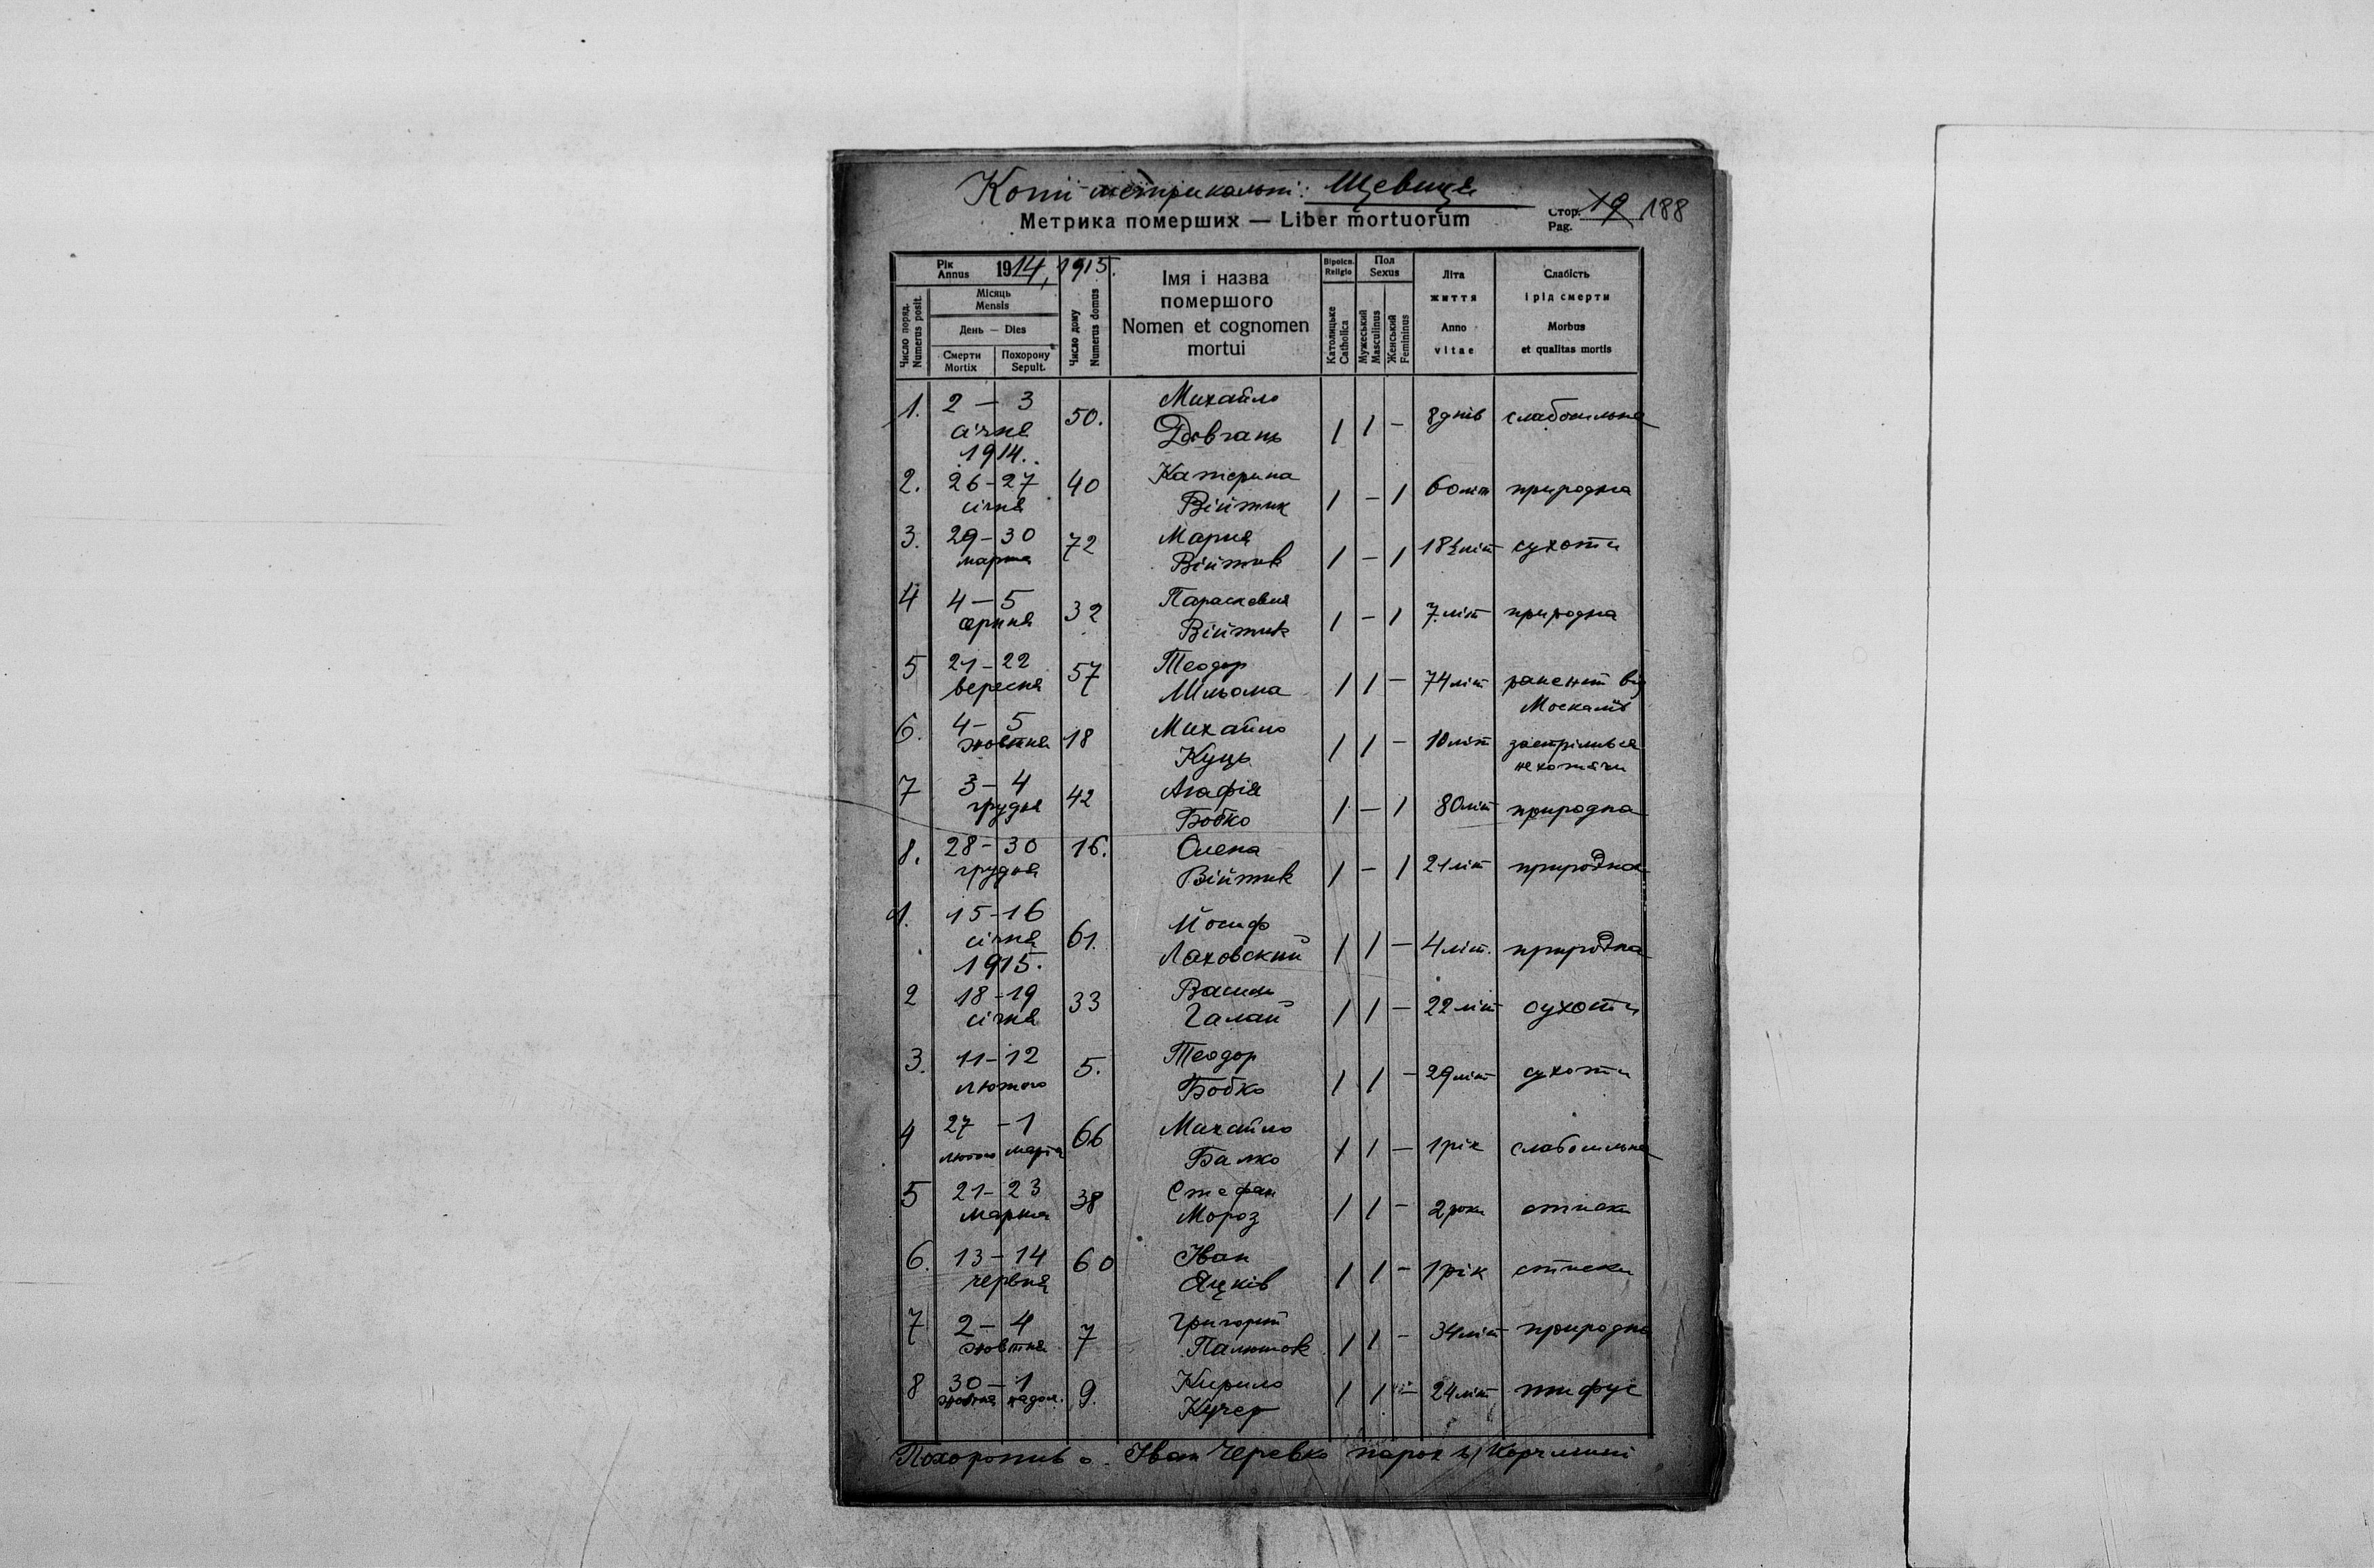 Копії метрикальні: Щевиця
Метрика померших — Liber mortuorum
Стор. Pag. 19 188
Рік Annus 1914, 1915.
Число поряд. Numerus posit.
Місяць Mensis
День — Dies
Смерти Mortix
Похорону Sepult.
Число дому Numerus domus
Імя і назва
помершого
Nomen et cognomen
mortui
Віроісп. Religio
Католицьке Catholica
Пол Sexus
Мужеський Masculinus
Женський Femininus
Літа життя
Anno vitae
Слабість
і рід смерти
Morbus
et qualitas mortis
1. 2 — 3 січня 1914. 50. Михайло Довгань 1 1 — 8 днів слабосильна
2. 26 - 27 січня 40 Катерина Війтик 1 — 1 60 літ природна
3. 29 - 30 марта 72 Мария Війтик 1 — 1 18½ літ сухоти
4 4 — 5 серпня 32 Параскевия Війтик 1 — 1 7 літ природна
5 21 - 22 вересня 57 Теодор 1 1 — 74 літ ранений від Москалів
6. 4 - 5 жовтня 18 Михайло Куць 1 1 — 10 літ застрілився нехотячи
7 3 - 4 грудня 42 Агафія Бобко 1 — 1 80 літ природна
8. 28 - 30 грудня 16. Олена Війтик 1 — 1 21 літ природна
1. 15 - 16 січня 1915. 61. Йосиф Лаховский 1 1 — 4 літ. природна
2 18 - 19 січня 33 Василь Галай 1 1 — 22 літ сухоти
3. 11 - 12 лютого 5. Теодор Бобко 1 1 — 29 літ сухоти
4 27 - 1 лютого марта 66 Михайло Балко 1 1 — 1 рік слабосильна
5 21 - 23 марта 38 Стефан Мороз 1 1 — 2 роки
6. 13 - 14 червня 60 Іван Яцків 1 1 — 1 рік
7 2 - 4 жовтня 7 Григорий Палюшок 1 1 — 34 літ природна
8 30 - 1 жовтня падол. 9. Кирило Кучер 1 1 — 24 літ тифус
Похоронив о. Іван Черевко парох в Корчмині